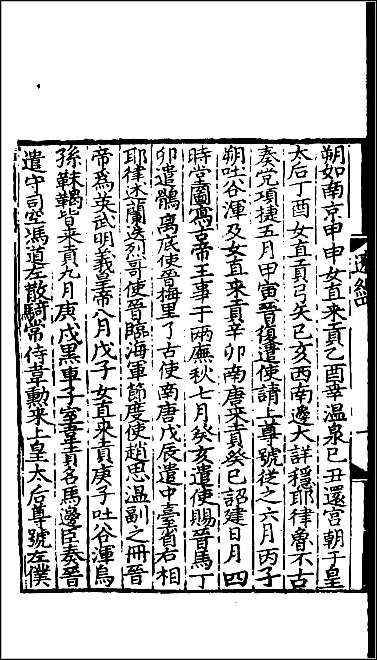 朔如南京甲申女直來貢乙酉幸溫泉己丑還宮朝于皇
太后丁酉女直貢弓矢己亥西南邊大詳穩耶律魯不古
奏党項捷五月甲寅晉復遣使請上尊號從之六月丙子
朔吐谷渾及女直來貢辛卯南唐來貢癸巳詔建日月四
時堂圖寫古帝王事于兩廡秋七月癸亥遣使賜晉馬丁
卯遣鶻离底使晉梅里了古使南唐戊辰遣中臺省右相
耶律述蘭迭烈哥使晉臨海軍節度使趙思溫副之冊晉
帝為英武明義皇帝八月戊子女直來貢庚子吐谷渾烏
孫靺鞨皆來貢九月庚戌黑車子室韋貢名馬邊臣奏晉
遣守司空馮道左散騎常侍韋勳來上皇太后尊號左僕